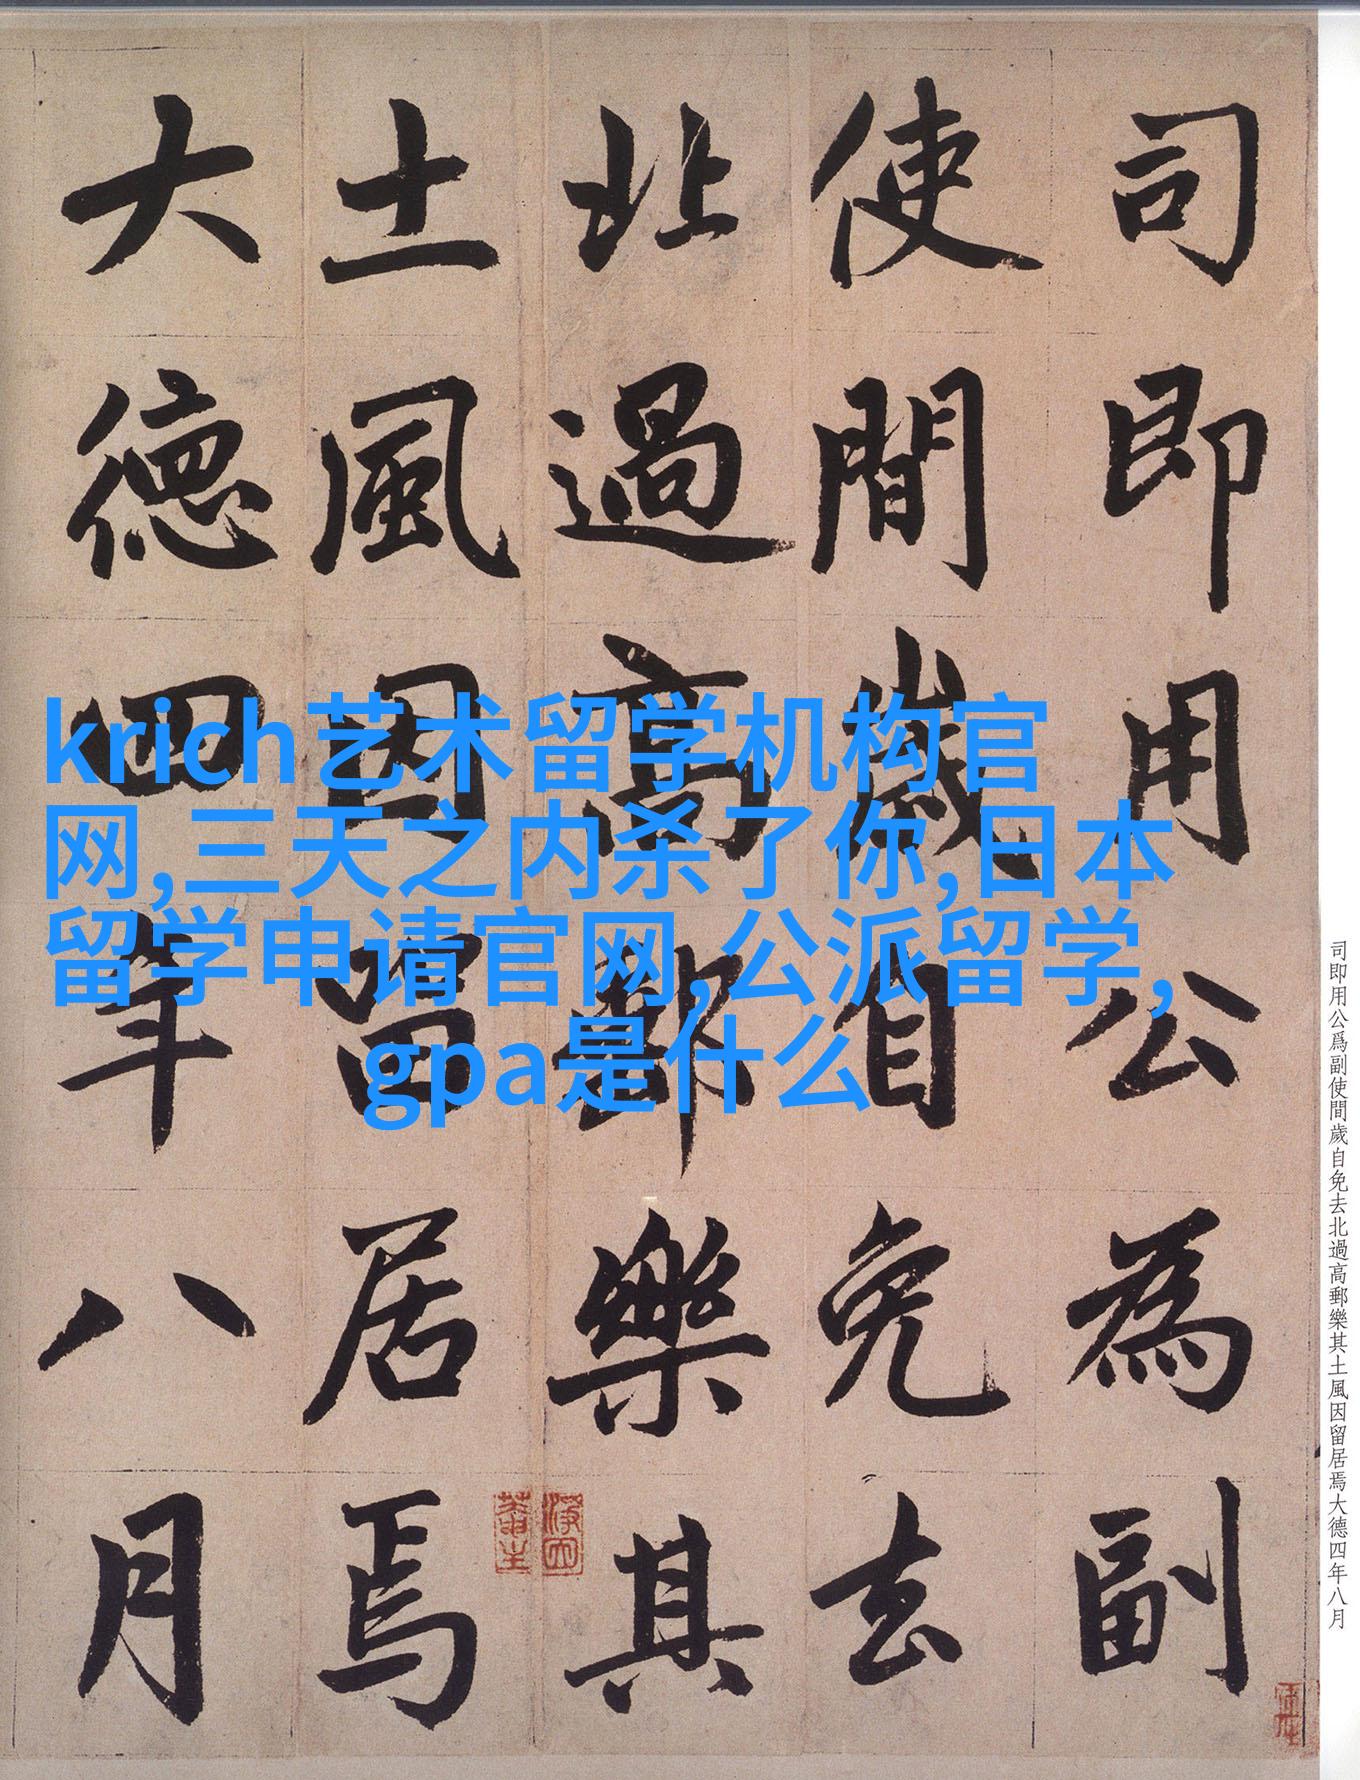 司即用公為副
使間歲自免去
北過高郵樂其
土風因留居焉
大德四年八月
krich艺术留学机构官
网,三天之内杀了你,日本
留学申请官网,公派留学,
gpa是什么
司即用公爲副使間歲自免去北過高郵樂其土風因留居焉大德四年八月